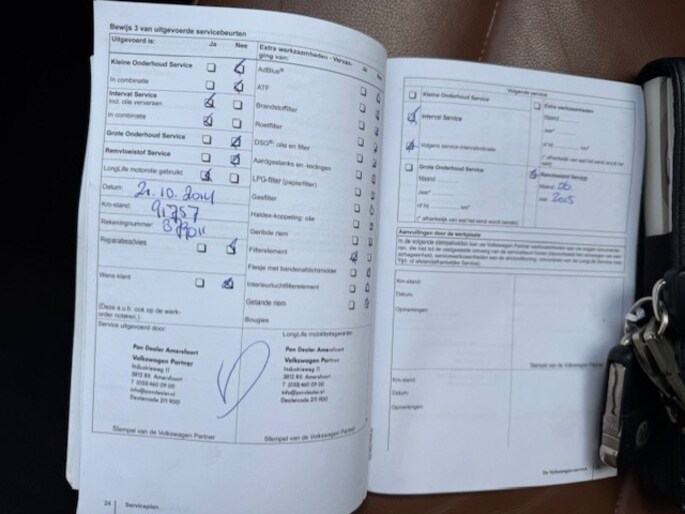 Bewijs 3 van uitgevoerde servicebeurten
Uitgevoerd is: Ja Nee
Kleine Onderhoud Service
In combinatie
Interval Service
incl. olie verversen
In combinatie
Grote Onderhoud Service
Remvloeistof Service
LongLife motorolie gebruikt
Datum: 21.10.2024
Km-stand: 91757
Rekeningnummer:
Reparatieadvies
Wens klant
(Deze a.u.b. ook op de werk-
order noteren.)
Service uitgevoerd door:
Pon Dealer Amersfoort
Volkswagen Partner
Industrieweg 11
3812 RX Amersfoort
T (033) 460 09 00
info@pondealer.nl
Dealercode 211 900
Stempel van de Volkswagen Partner
24 Serviceplan
Extra werkzaamheden - Vervan-
ging van: Ja
AdBlue®
ATF
Brandstoffilter
Roetfilter
DSG®: olie en filter
Aardgastanks en -leidingen
LPG-filter (papierfilter)
Gasfilter
Haldex-koppeling: olie
Geribde riem
Filterelement
Flesje met bandenafdichtmiddel
Interieurluchtfilterelement
Getande riem
Bougies
LongLife mobiliteitsgarantie:
Pon Dealer Amersfoort
Volkswagen Partner
Industrieweg 11
3812 RX Amersfoort
T (033) 460 09 00
info@pondealer.nl
Dealercode 211 900
Stempel van de Volkswagen Partner
Volgende service:
Kleine Onderhoud Service
Interval Service
Volgens service-intervalindicatie
Grote Onderhoud Service
Maand
Jaar*
of bij km*
(* afhankelijk van wat het eerst wordt bereikt)
Extra werkzaamheden
Maand
Jaar*
of bij km*
(* afhankelijk van wat het eerst wordt
bereikt)
Remvloeistof Service
Maand 06
Jaar 2025
Aanvullingen door de werkplaats
Km-stand:
Datum:
Opmerkingen:
Stempel van de Volkswagen Partner
Km-stand:
Datum:
Opmerkingen:
Stempel van de Volkswagen Partner
De Volkswagen-service